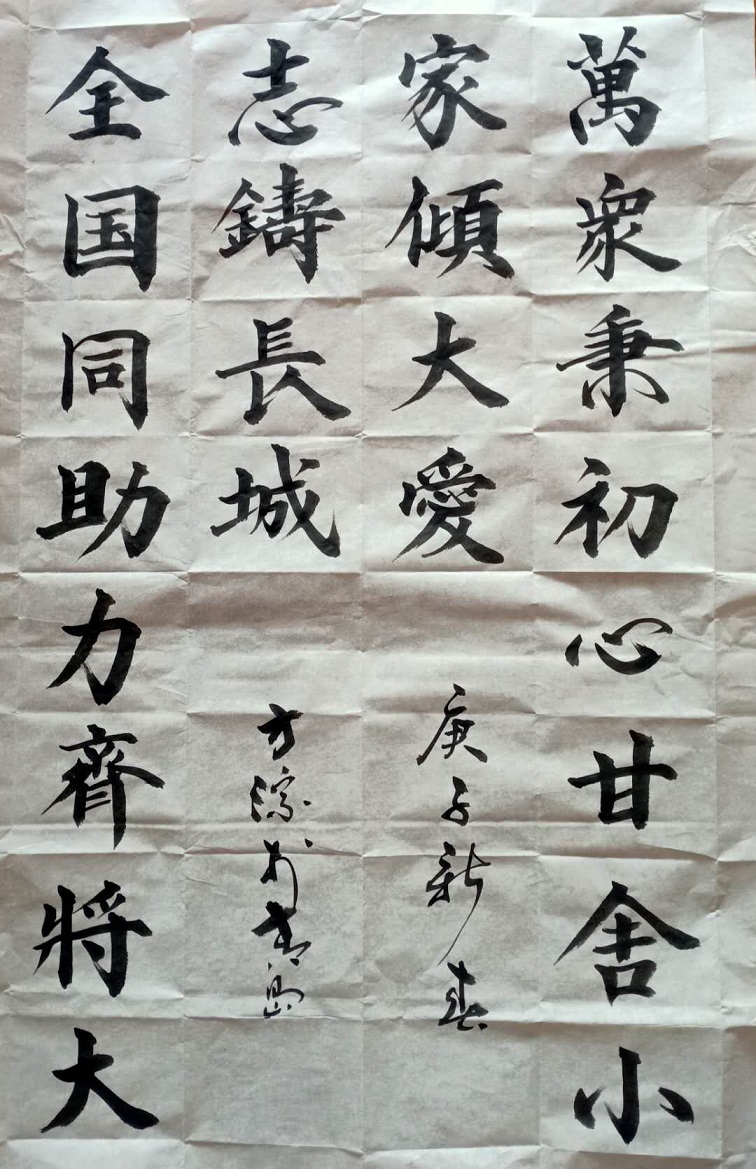 萬衆秉初心甘舍小
家傾大愛
庚子新春
全国同助力齊將大
志鑄長城
方 於青島